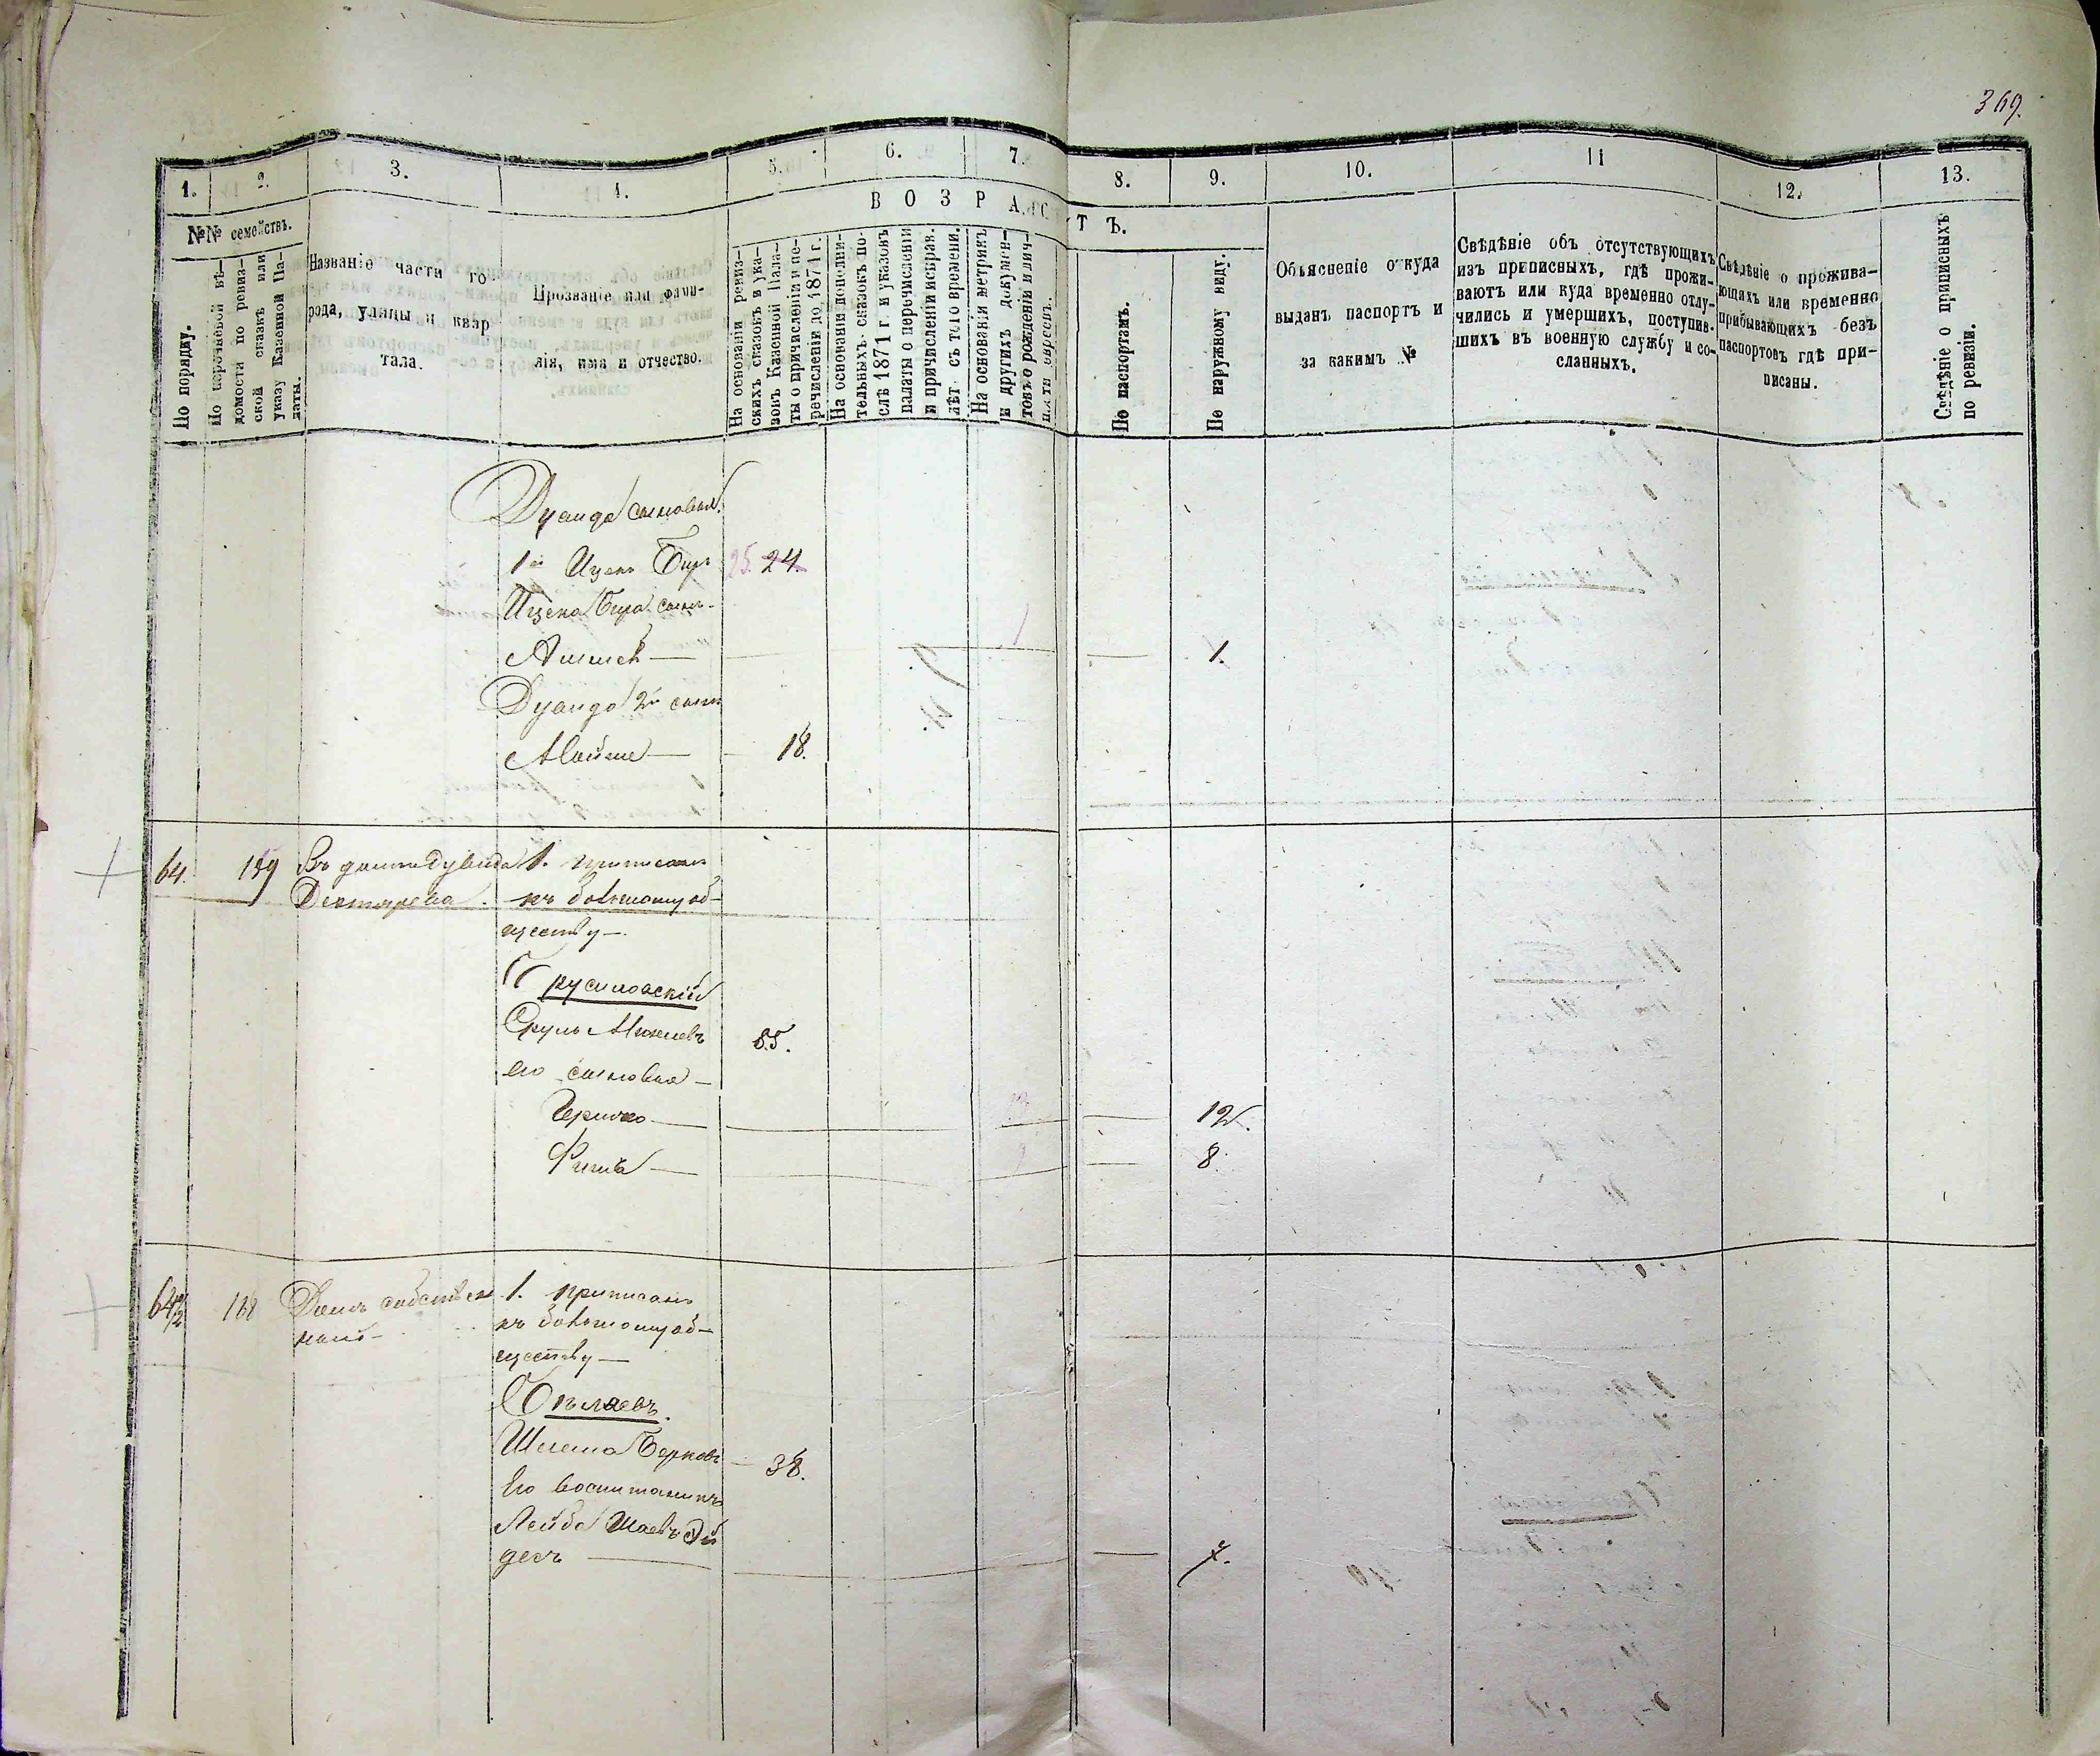 369.
1.
2.
3.
4.
5.
6.
7.
8.
9.
10.
11
12.
13.
ВОЗРАСТЪ.
№№ семействъ.
По порядку.
По перечневой вѣ-
домости по ревиз-
ской сказкѣ или
указу Казенной Па-
латы.
Названіе части го-
рода, улицы и квар
тала.
Прозваніе или фами-
лія, имя и отчество.
На основаніи ревиз-
скихъ сказокъ и ука-
зовъ Казенной Пала-
ты о причисленіи и пе-
речисленіи до 1874 г.
На основаніи дополни-
тельныхъ сказокъ по-
слѣ 1871 г. и указовъ
палаты о перечисленіи
и причисленіи исправ.
лѣт съ того времени.
На основаніи метрикъ
и другихъ докумен-
товъ о рожденіи и лич-
ности евреевъ.
По паспортамъ.
По наружному виду.
Объясненіе откуда
выданъ паспортъ и
за какимъ №
Свѣдѣніе объ отсутствующихъ
изъ приписныхъ, гдѣ прожи-
ваютъ или куда временно отлу-
чились и умершихъ, поступив-
шихъ въ военную службу и со-
сланныхъ.
Свѣдѣніе о прожива-
ющихъ или временно
прибывающихъ безъ
паспортовъ гдѣ при-
писаны.
Свѣдѣніе о приписныхъ
по ревизіи.
сыновья.
1й Ицекъ Беръ 25. 24.
Ицека Бера сынъ-
1.
2й сынъ
Мойше — 18.
64. 159 Въ домѣ Дувида 1. приписанъ
Дехтярева. къ большому об-
ществу —
Трусиловскій
Сруль 85.
его сыновья —
Гершко — 12.
8.
64½ 118 Домъ собствен 1. приписанъ
ной - къ большому об-
ществу —
Бѣлаевъ.
Шлема Берковъ — 38.
Его воспитаникъ
Лейба Шаевъ Эй
десъ — 7.